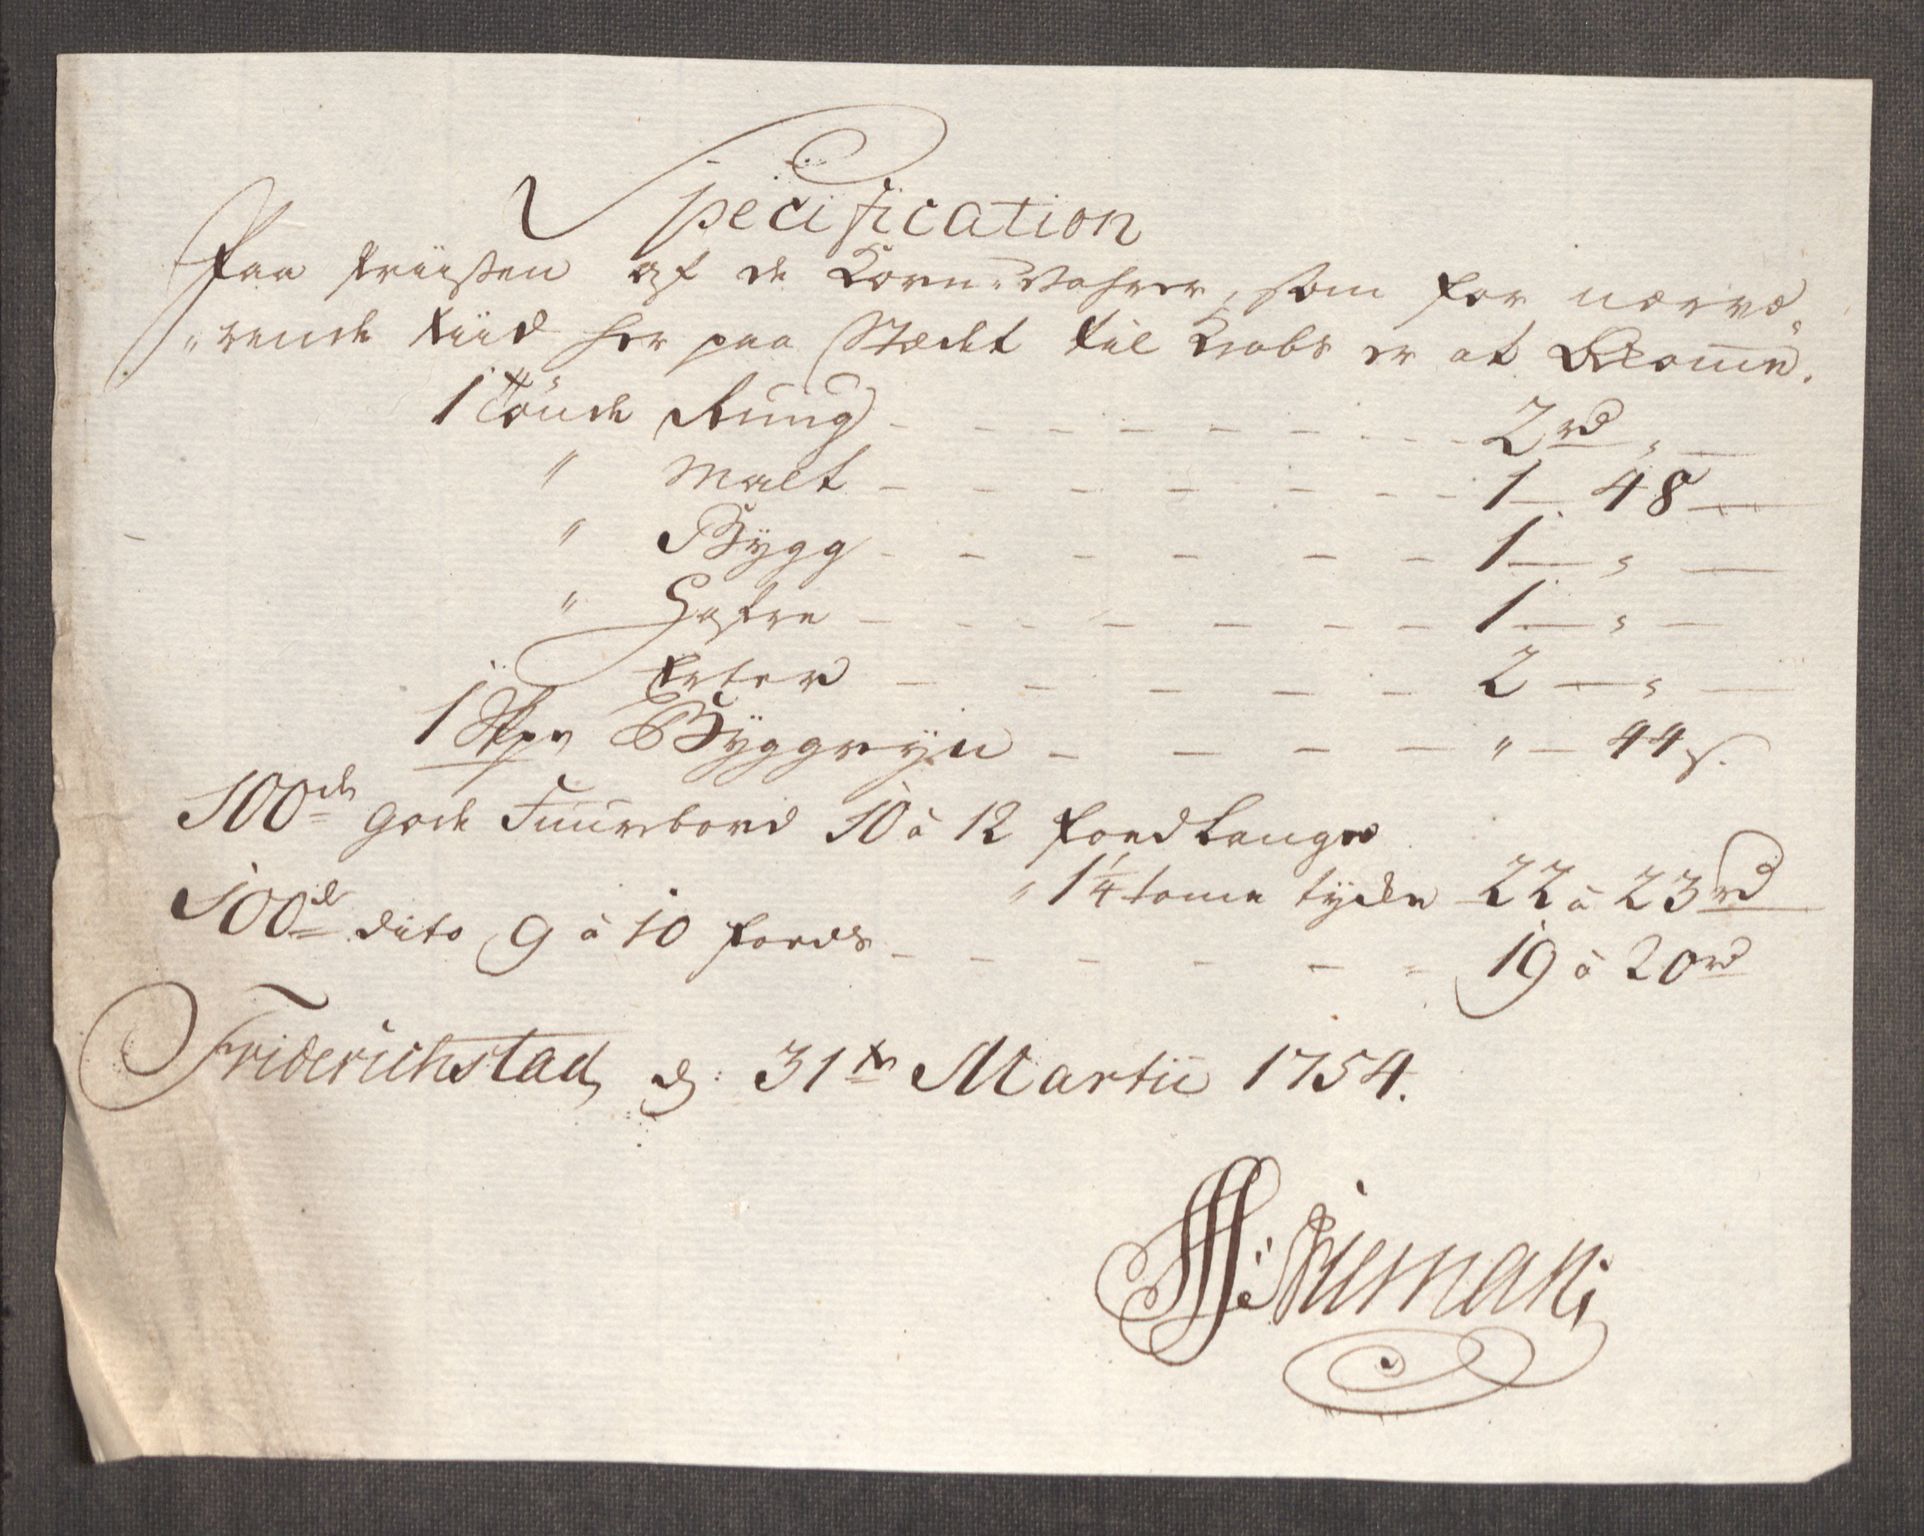 Specification
Paa Priisen af de Korn-Vahrer, som for nærvæ,,
,,rende Tiid her paa Stædet til Kiøbs er at bekome.
1 Tönde Rung - - - 2 rd „ —
" Malt - - - 1 — 48 —
" Bÿgg - - - 1 — „ —
" Hafre - - - 1 — „ —
Erter - - - 2 — „ —
1 Skpe Bÿggrÿn - - - " — 44 s.
100de gode Fuurebord 10 à 12 foed lange
" 1 1/4 tome tÿcke 22 à 23 rd
100de dito 9 à 10 foeds - - - 19 à 20 rd
Friderichstad, d: 31te Martii 1754.